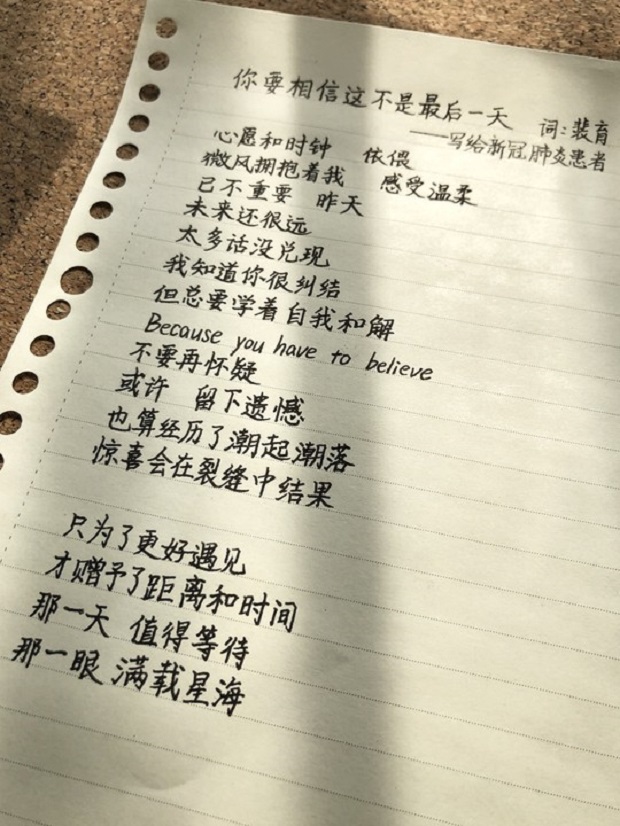 你要相信这不是最后一天 词:裴育
——写给新冠肺炎患者
心愿和时钟 依偎
微风拥抱着我 感受温柔
已不重要 昨天
未来还很远
太多话没兑现
我知道你很纠结
但总要学着自我和解
Because you have to believe
不要再怀疑
或许 留下遗憾
也算经历了潮起潮落
惊喜会在裂缝中结果
只为了更好遇见
才赠予了距离和时间
那一天 值得等待
那一眼 满载星海